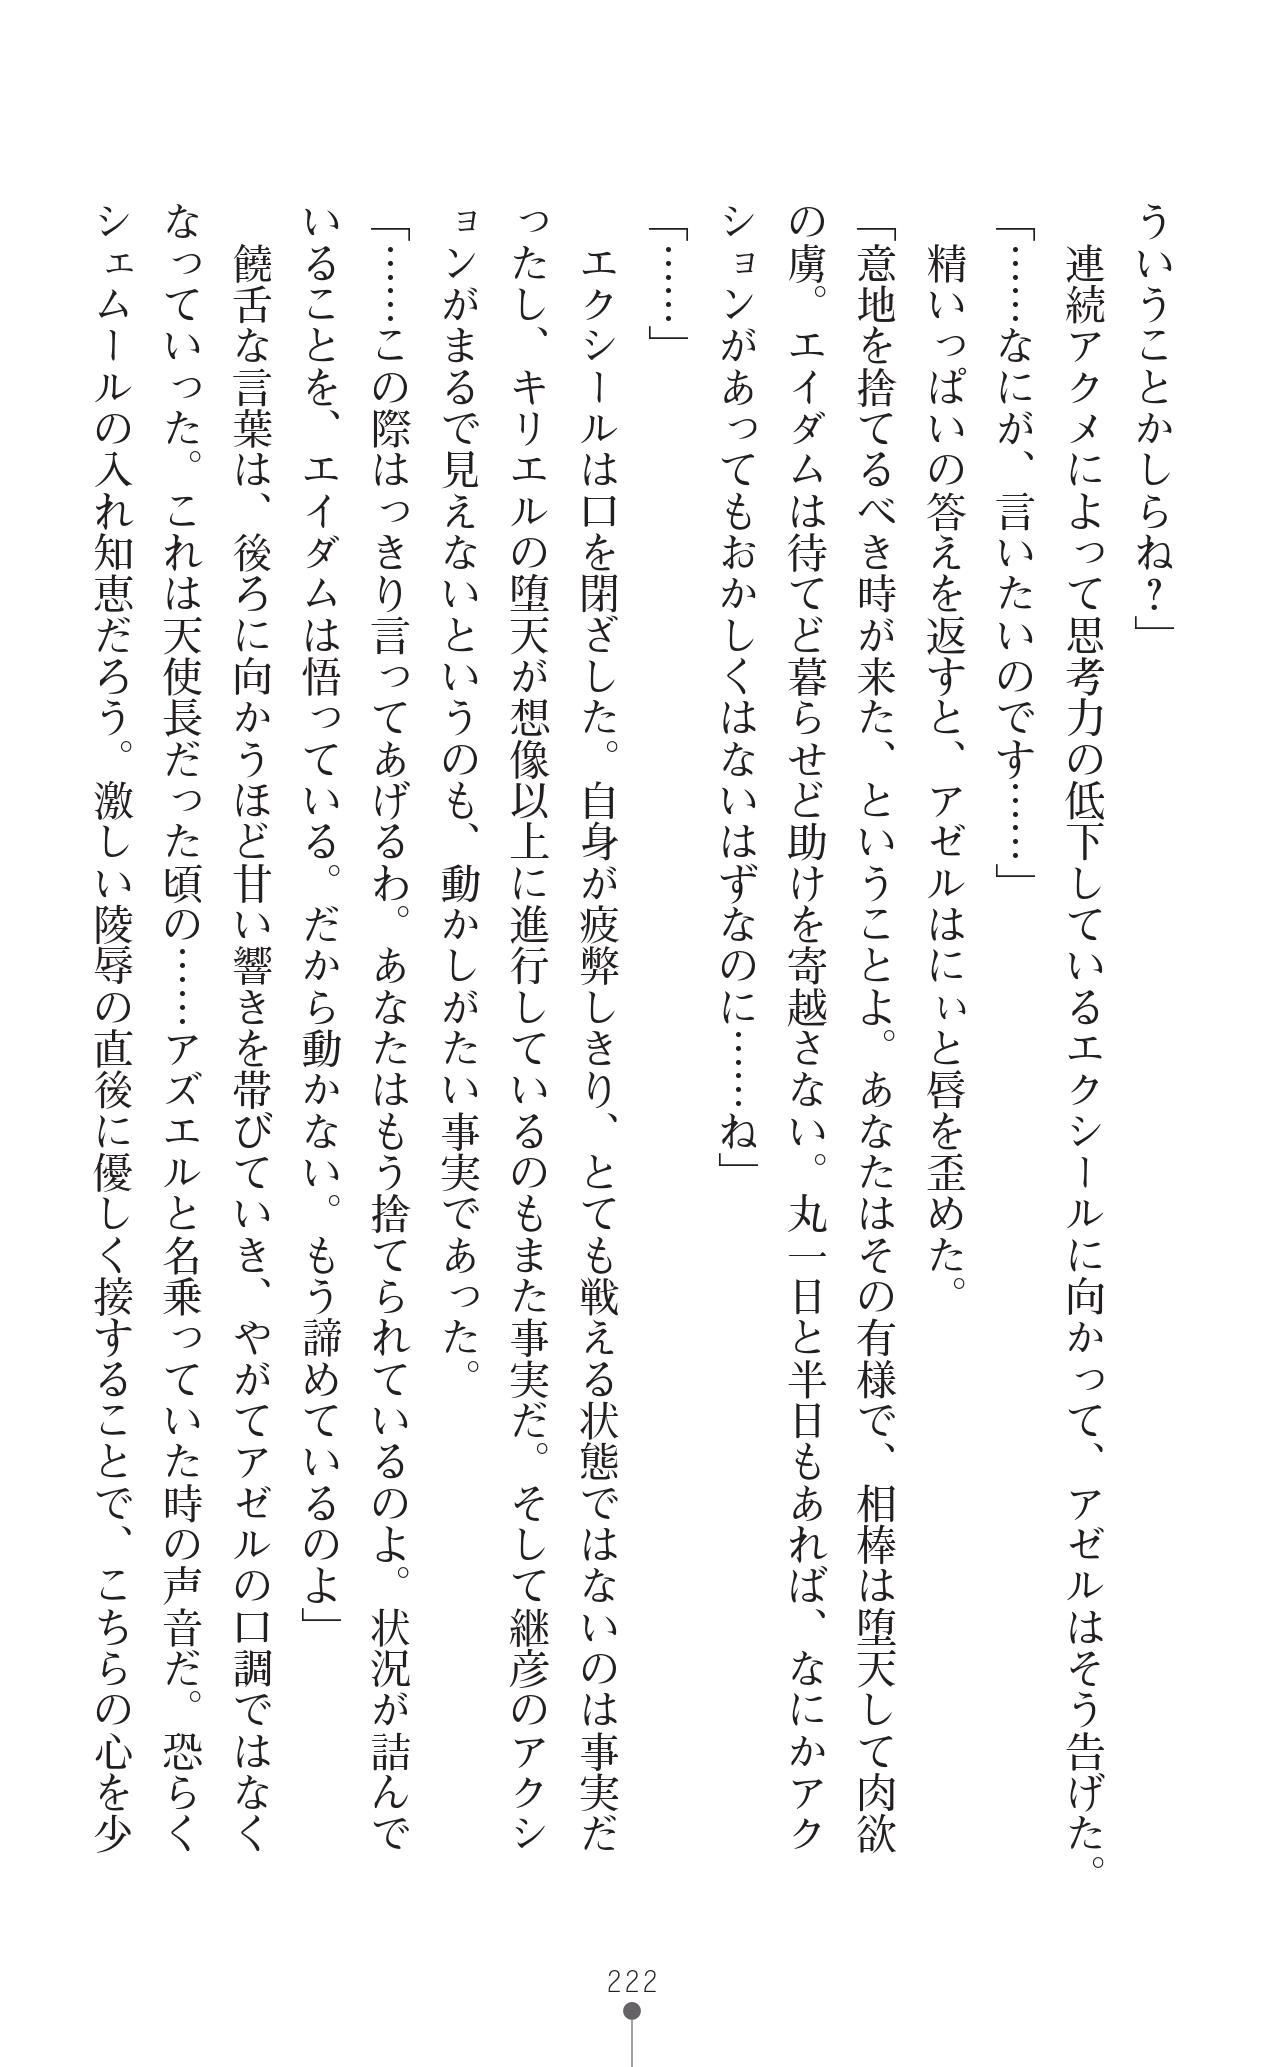 ういうことかしらね？」
　連続アクメによって思考力の低下しているエクシールに向かって、アゼルはそう告げた。
「……なにが、言いたいのです……」
　精いっぱいの答えを返すと、アゼルはにぃと唇を歪めた。
「意地を捨てるべき時が来た、ということよ。あなたはその有様で、相棒は堕天して肉欲
の虜。エイダムは待てど暮らせど助けを寄越さない。丸一日と半日もあれば、なにかアク
ションがあってもおかしくはないはずなのに……ね」
「……」
　エクシールは口を閉ざした。自身が疲弊しきり、とても戦える状態ではないのは事実だ
ったし、キリエルの堕天が想像以上に進行しているのもまた事実だ。そして継彦のアクシ
ョンがまるで見えないというのも、動かしがたい事実であった。
「……この際はっきり言ってあげるわ。あなたはもう捨てられているのよ。状況が詰んで
いることを、エイダムは悟っている。だから動かない。もう諦めているのよ」
　饒舌な言葉は、後ろに向かうほど甘い響きを帯びていき、やがてアゼルの口調ではなく
なっていった。これは天使長だった頃の……アズエルと名乗っていた時の声音だ。恐らく
シェムールの入れ知恵だろう。激しい陵辱の直後に優しく接することで、こちらの心を少
222